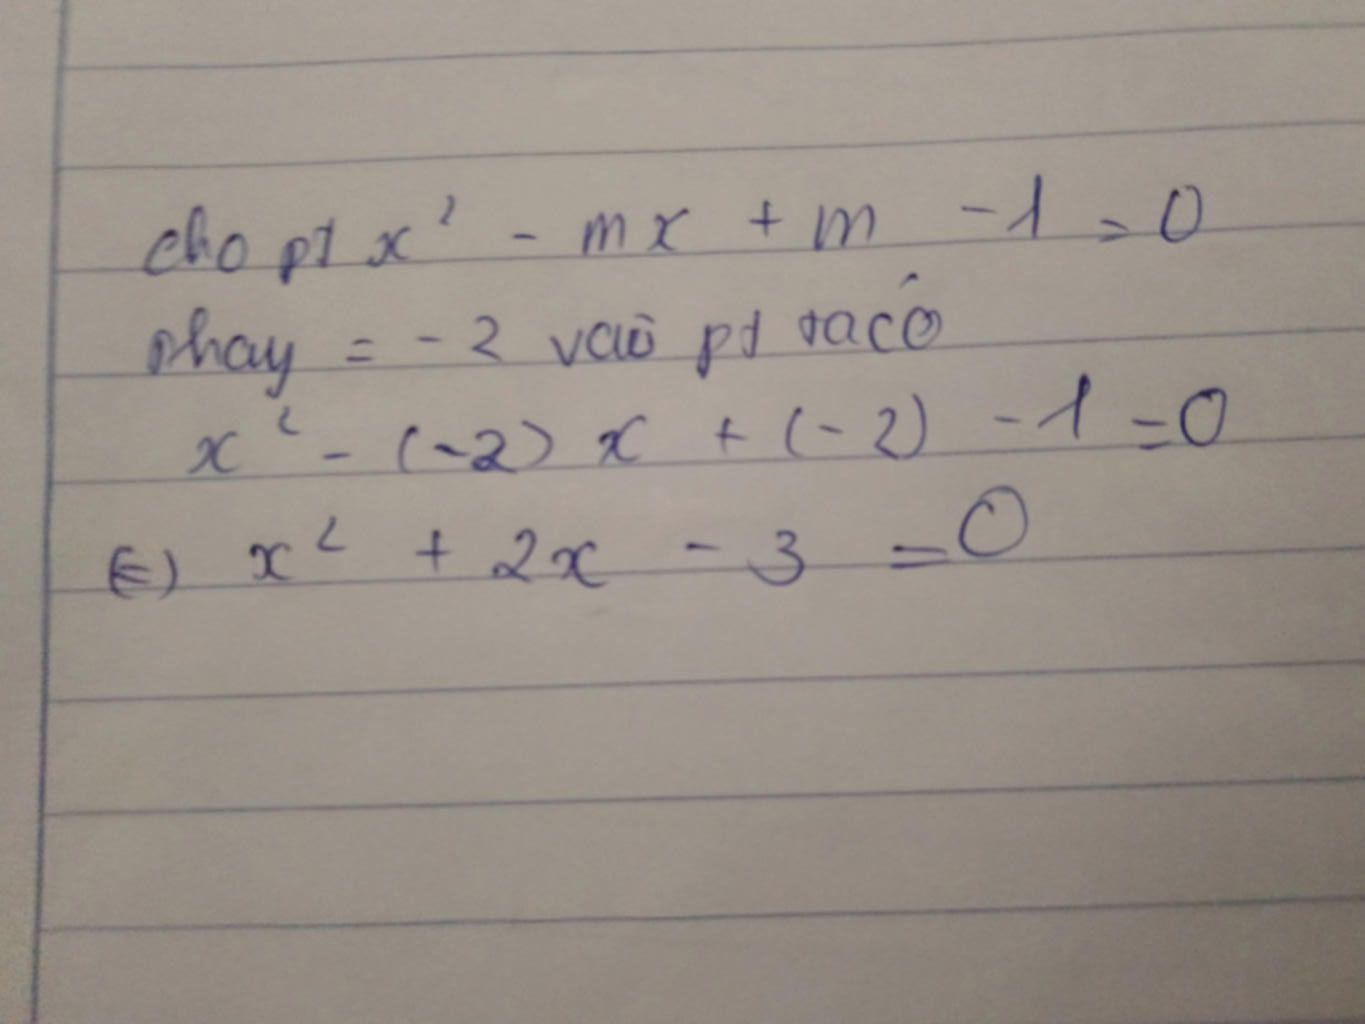 cho pt x² - mx + m - 1 = 0
thay = -2 vào pt ta có
x² - (-2) x + (-2) - 1 = 0
(=) x² + 2x - 3 = 0